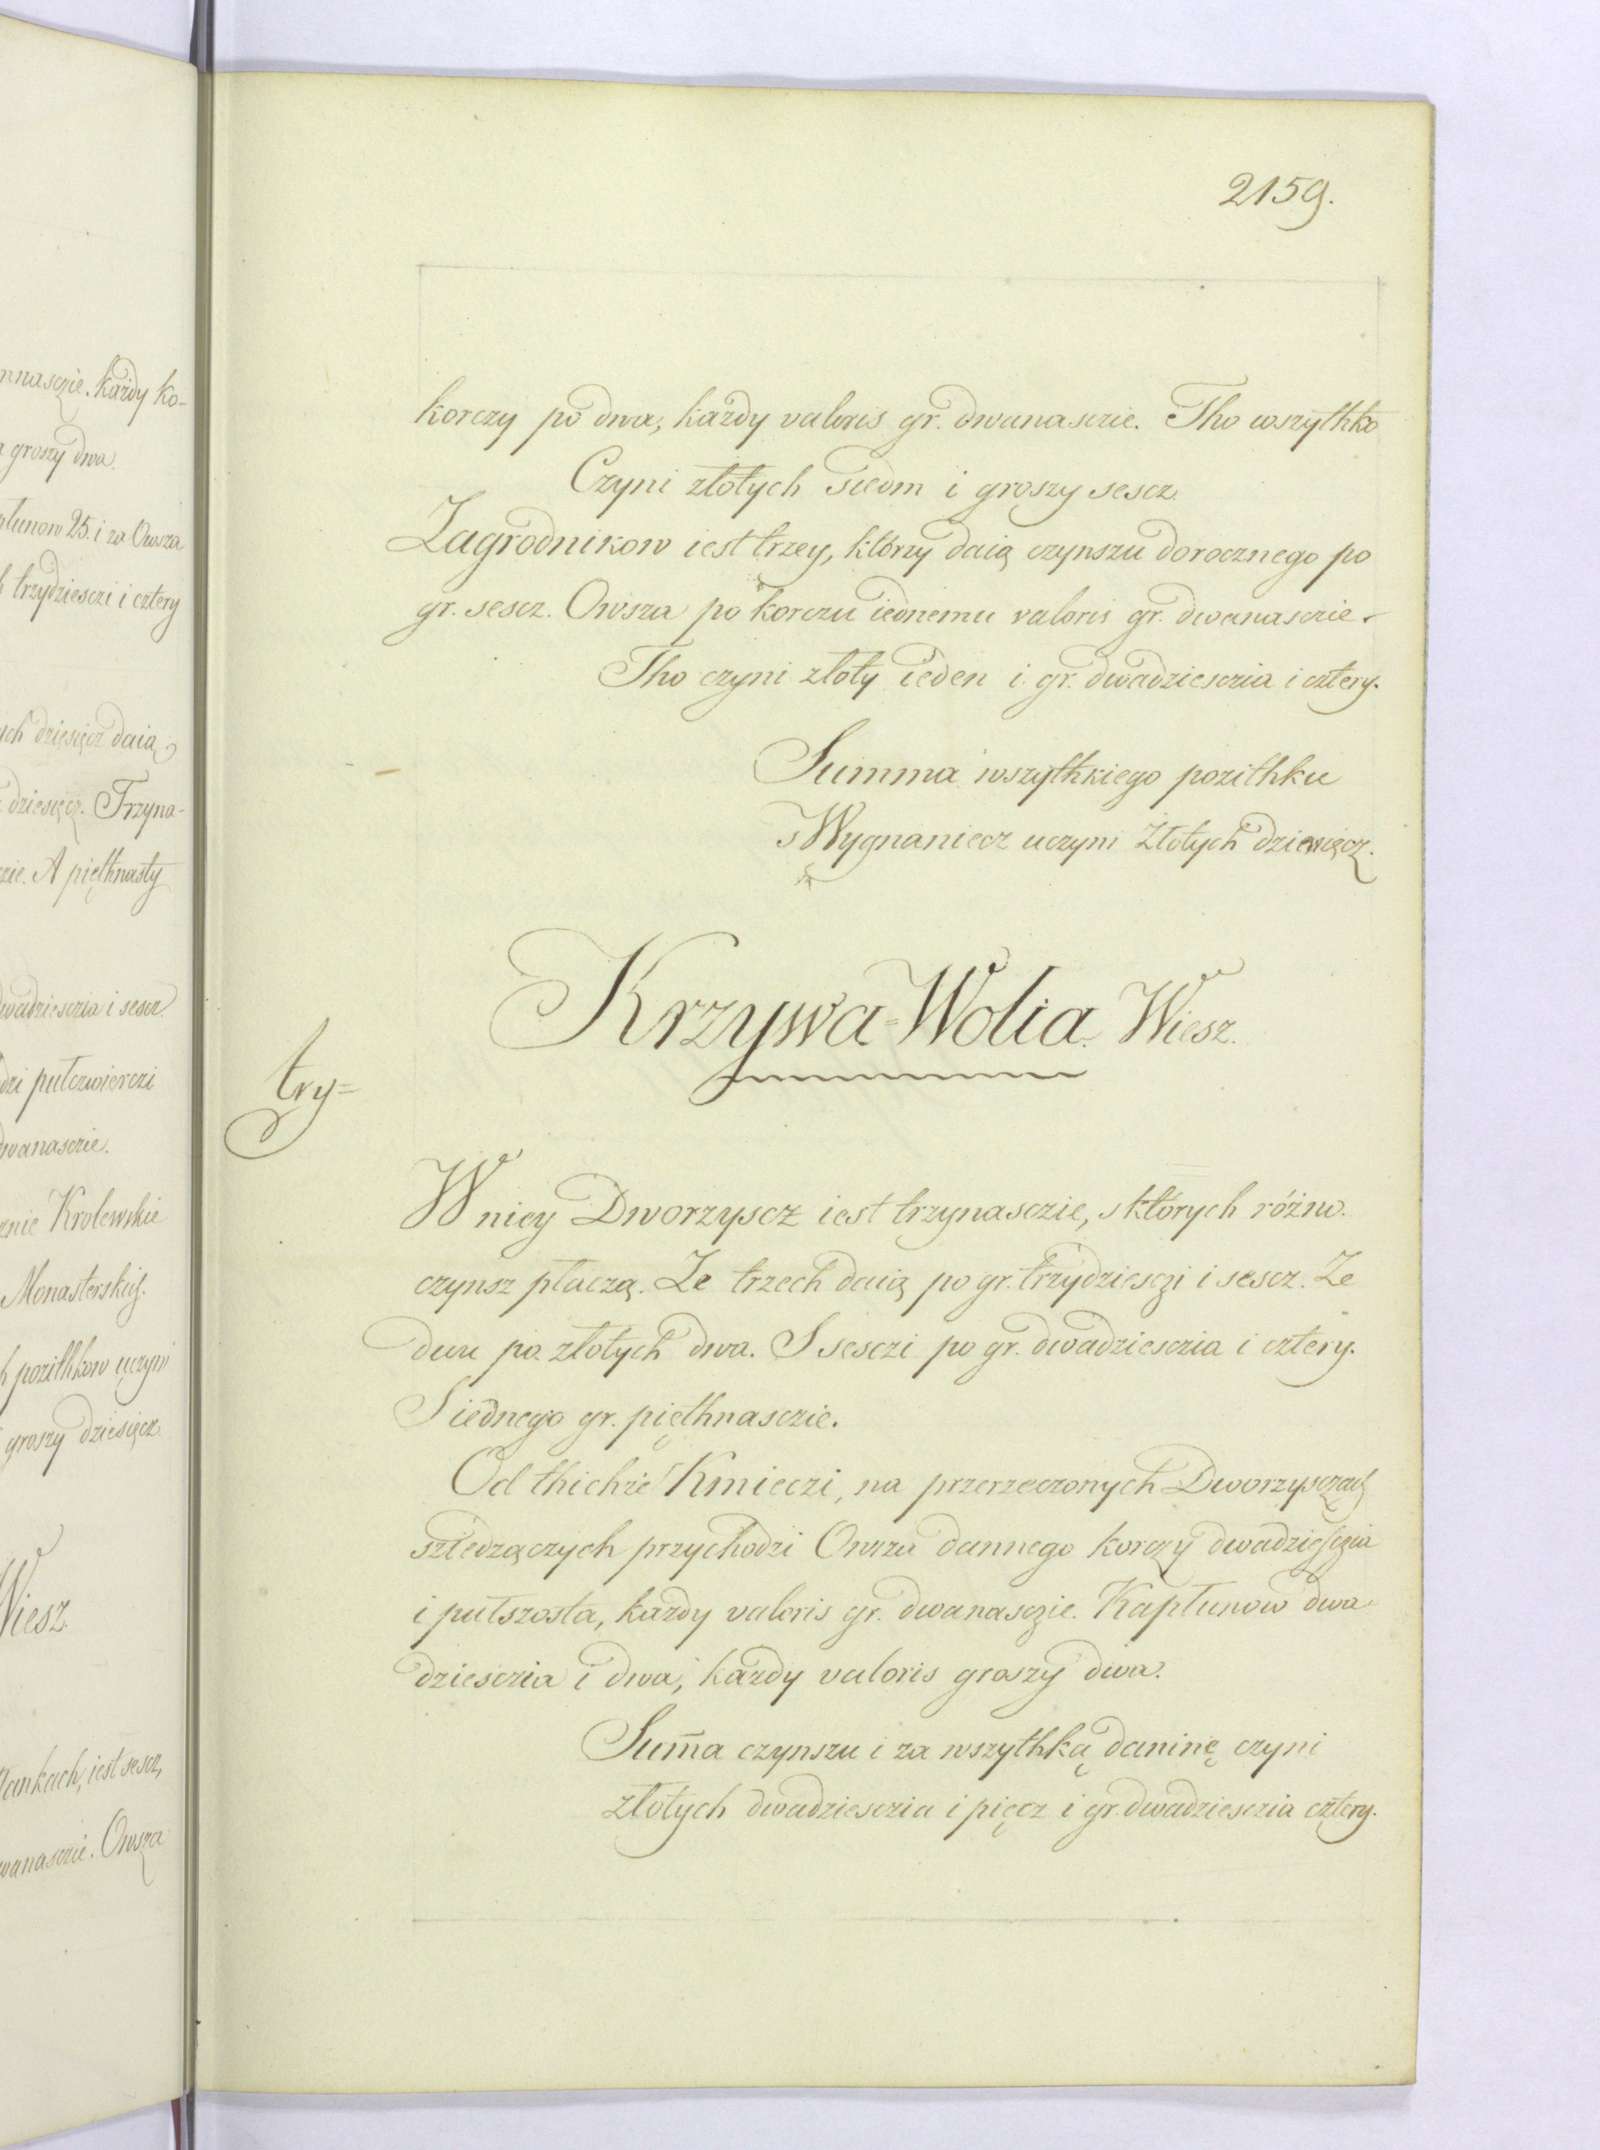 nnasczie. każdy ko-
groszy dwa.
płunow 25. i za Owsza
trzydziesczi i cztery
dziesięcz daią
dziesięcz. Trzyna-
czie. A pięthnasty
dwadziesczia i sescz
pułczwierczi
dwanasczie.
Krolewskie
Monasterskiej.
pozithkow uczyni
groszy dziesięcz
Wiesz.
Łankach, iest sescz,
dwanasczie. Owsza
2159.
korczy po dwa, każdy valoris gr. dwanasczie. Tho wszythko
Czyni złotych siedm i groszy sescz.
Zagrodnikow iest trzey, którzy daią czynszu dorocznego po
gr. sescz. Owsza po korczu iednemu valoris gr. dwanasczie.
Tho czyni złoty ieden i gr. dwadziesczia i cztery.
Summa wszythkiego pozithku
s Wygnaniecz uczyni Złotych dziewięcz.
Krzywa=Wolia. Wiesz.
try=
W niey Dworzyscz iest trzynasczie, s których różnie
czynsz płaczą. Ze trzech daią po gr. trzydziesczi i sescz. Ze
dwu po złotych dwa. S sesczi po gr. dwadziesczia i cztery.
S iednego gr. pięthnasczie.
Od thichże Kmieczi, na przerzeczonych Dworzysczach
sziedzączych przychodzi Owsza dannego korczy dwadziesczia
i pułszosta, każdy valoris gr. dwanasczie. Kapłunow dwa
dziesczia i dwa, każdy valoris groszy dwa.
Sum̄a czynszu i za wszythką daninę czyni
złotych dwadziesczia i pięcz i gr. dwadziesczia cztery.